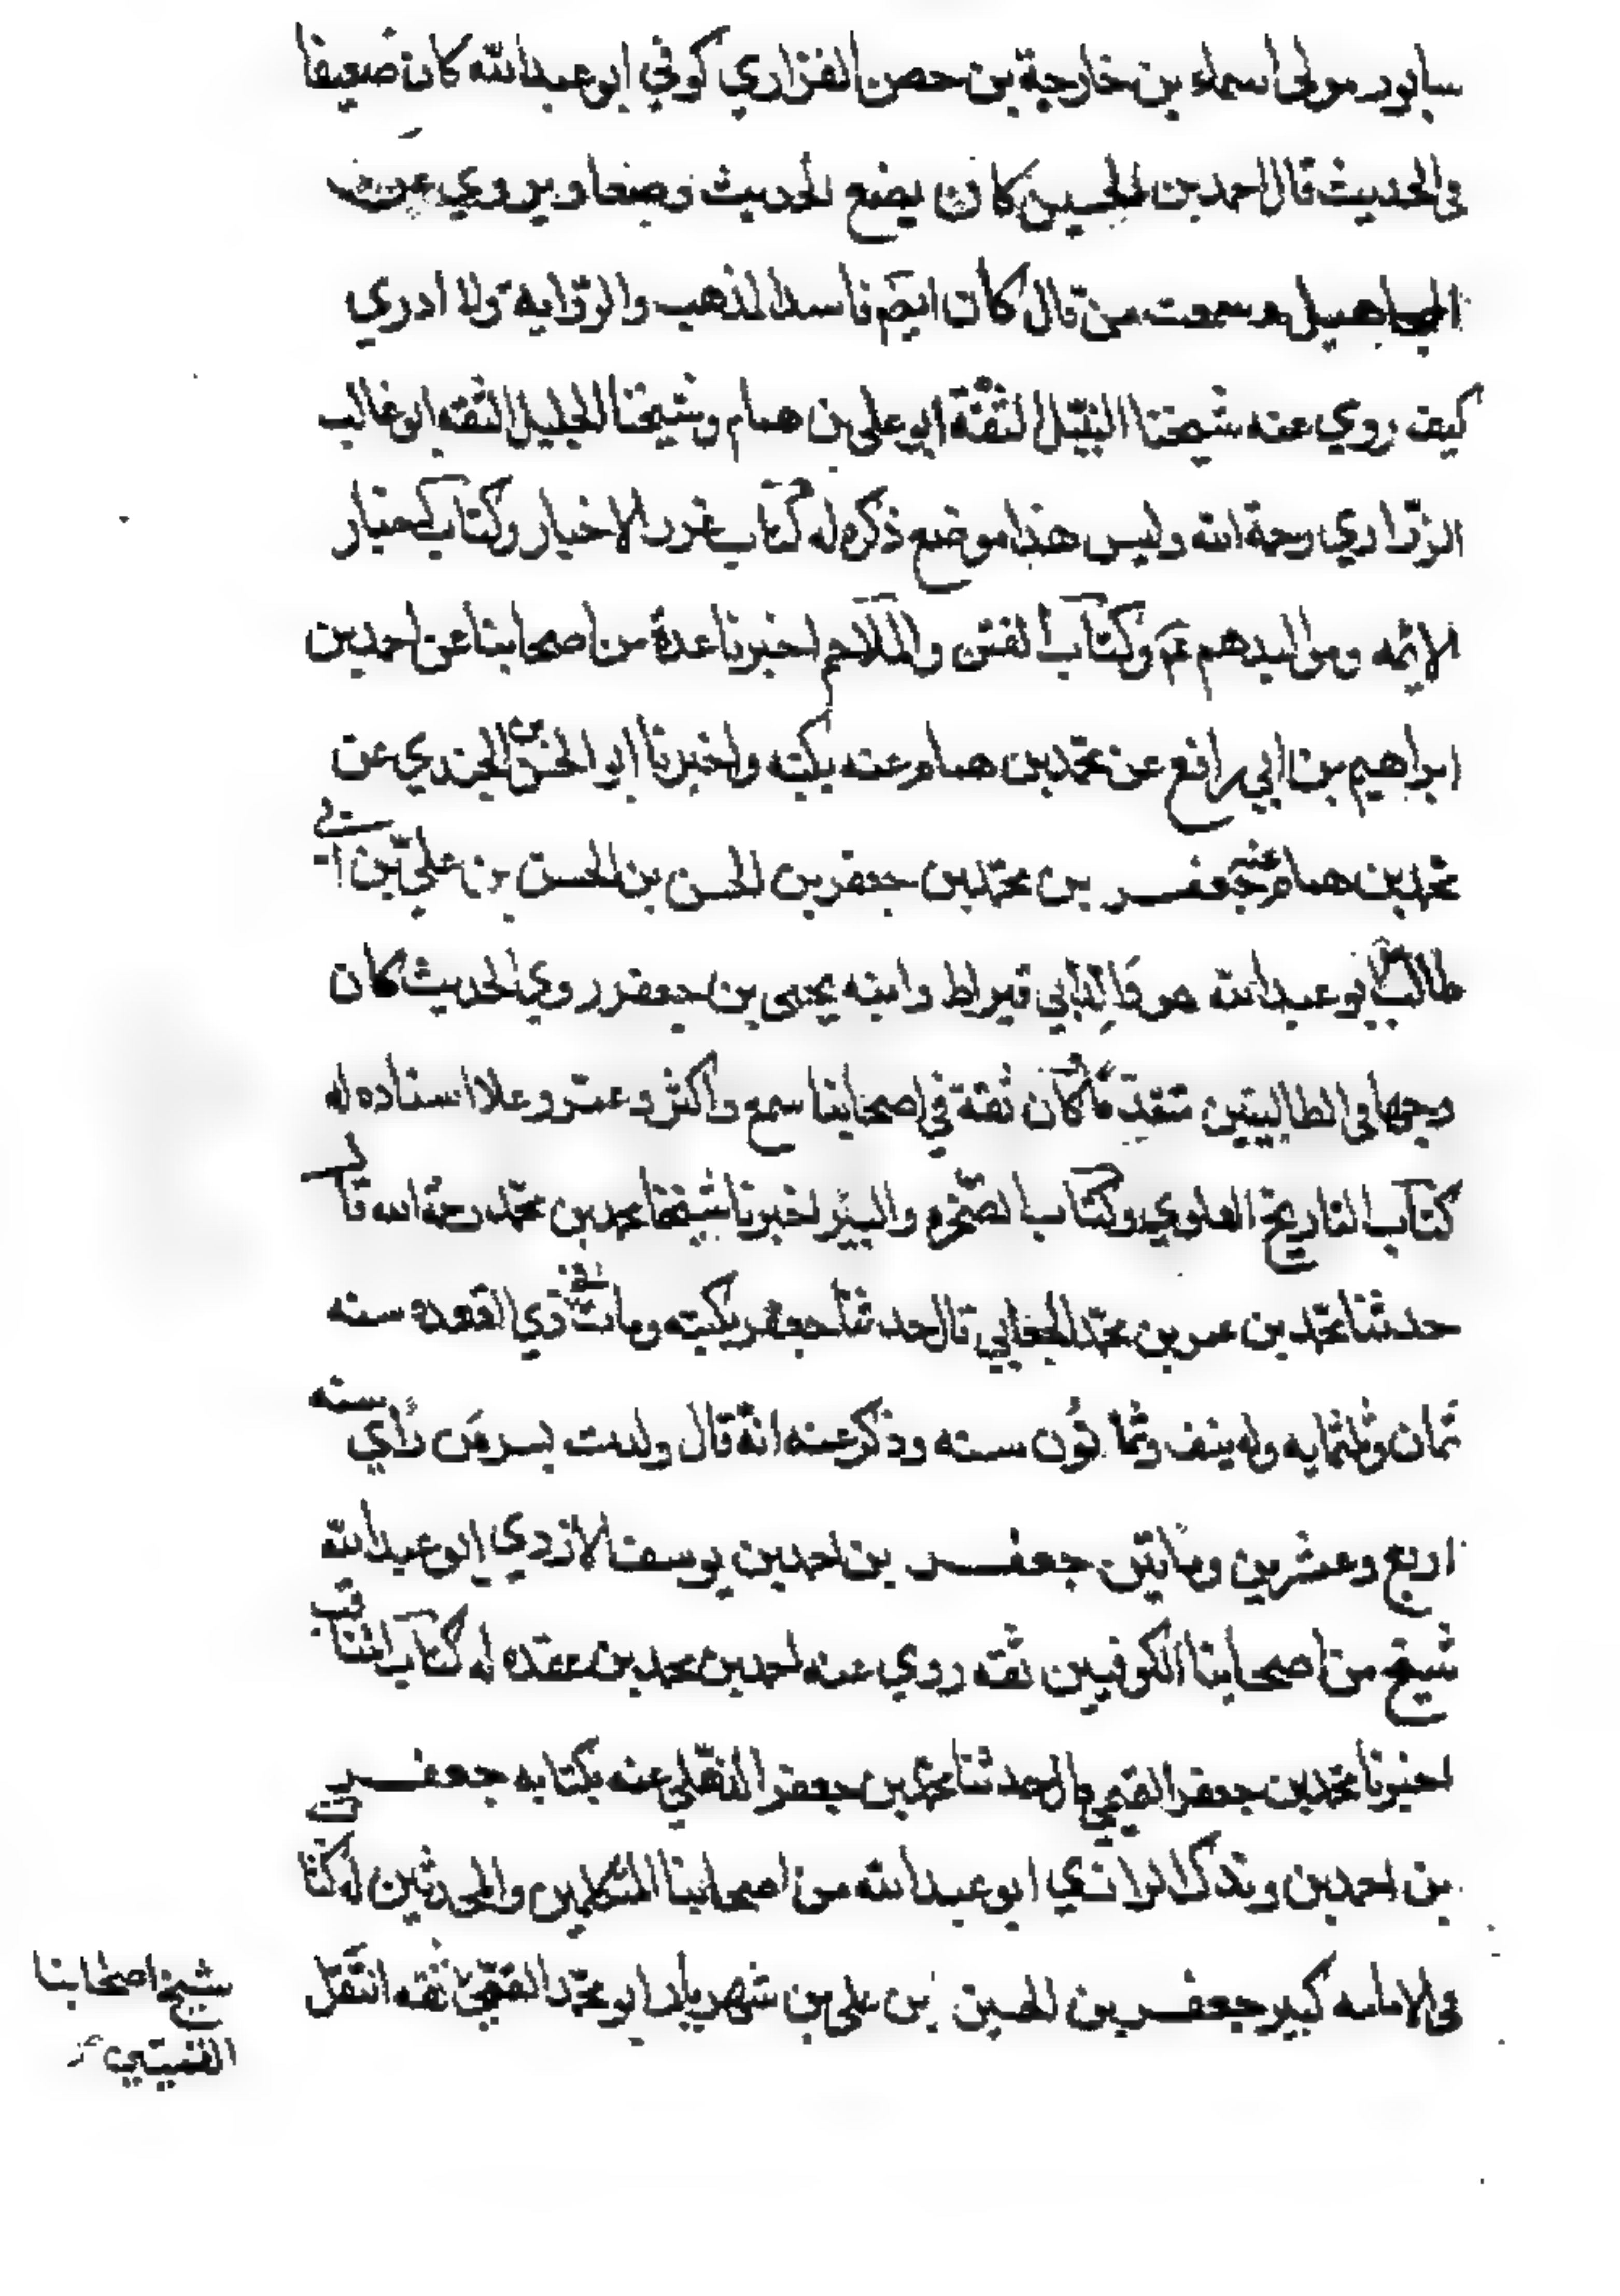 سابور مولى اسماء بن خارجة بن حصن الفزاري كوفي ابو عبدالله كان ضعيفا
في الحديث قال احمد بن الحسين كان يضع الحديث وضعا ويروي عن
المجاهيل وسمعت من قال كان ايضَ فاسد المذهب والرّوايه ولا ادري
كيف روي عنه شيخنا النبيّل الثقة ابو علي بن همام وشيخنا الجليل الثقه ابو غالب
الزّراري رحمة الله وليس هذا موضع ذكره له كتاب غرر الاخبار وكتاب اخبار
الائمه ومواليدهم عَ وكتاب الفتن والملاحم اخبرنا عدة من اصحابنا عن احمد بن
ابراهيم بن ابي رافع عن محمّد بن همام عنه بكتبه واخبرنا ابو الحسين الجندي عن
محمد بن همام عنه جعفر بن محمّد بن جعفر بن الحسن بن الحسن بن عليّ بن ابي
طالب ابو عبدالله هو والد ابي قيراط وابنه يحيى بن جعفر روي الحديث كان
وجها في الطالبيّين متقدّما كان ثقة في اصحابنا سمع واكثر وعمّر وعلا اسناده له
كتاب التاريخ العلوي وكتاب الصّخره والبئر اخبرنا شيخنا محمد بن محمّد رحمة الله قال
حدثنا محمّد بن عمر بن محمّد الجعابي قال حدثنا جعفر بكتبه ومات في ذي القعده سنه
ثمان وثلثمايه وله نيف وثمانون سنه وذكر عنه انّه قال ولدت بسرمَن رأي سنه
اربع وعشرين ومايتين جعفر بن احمد بن يوسف الازدي ابو عبدالله
شيخ من اصحابنا الكوفيين ثقه روي عنه احمد بن محمد بن عقده له كتاب المناقب
اخبرنا محمد بن جعفر القيمي قال حدثنا محمّد بن جعفر عنه بكتابه جعفر
بن احمد بن وندك الرازي ابو عبدالله من اصحابنا المتكلمين والمحدثين له كتاب
في الامامه كبير جعفر بن الحسين بن علي بن شهريار ابو محمّد القمّيّ ثقه انتقل
شيخ اصحابنا
القميّين